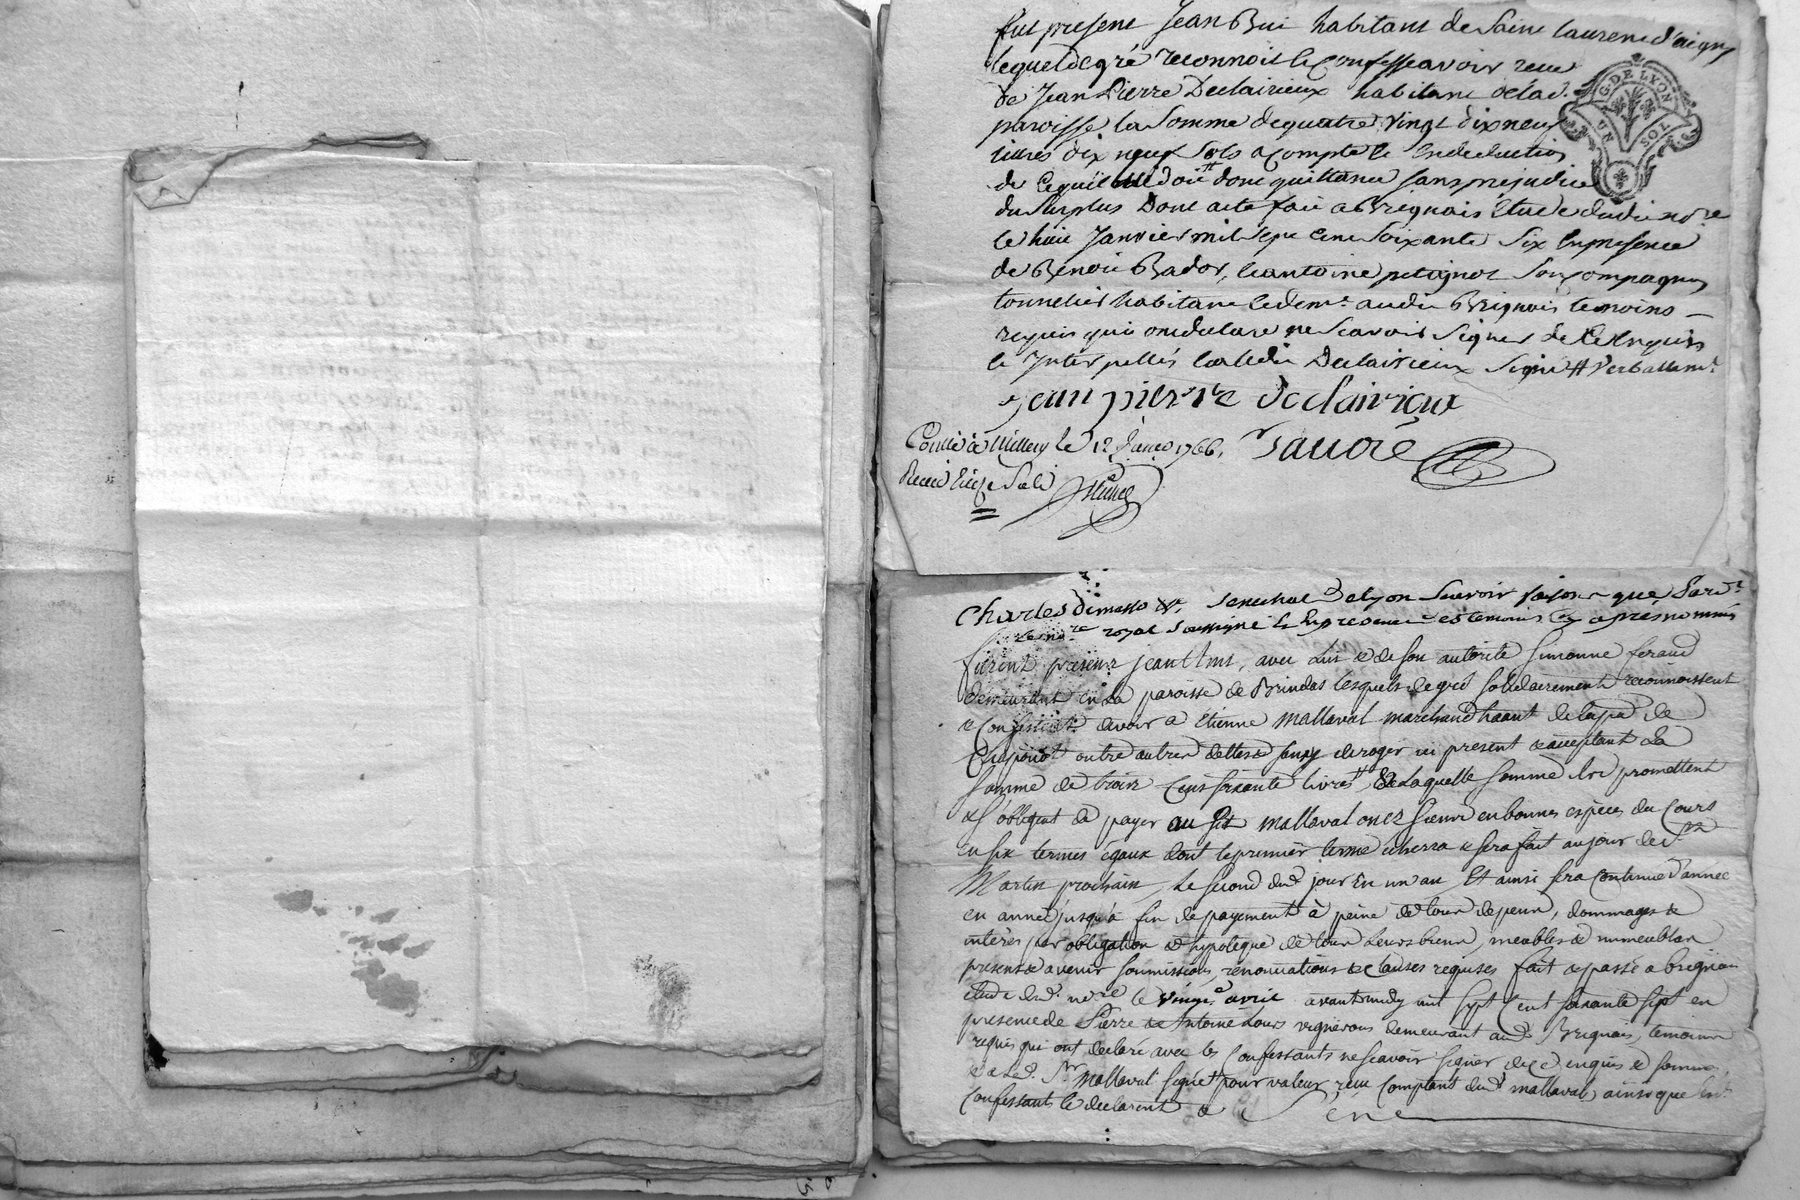 fut present Jean Bui habitant de Saint Laurent d'aigny
lequel de gré reconnoit & confesse avoir receu
de Jean Pierre Declairieux habitant de lad.
paroisse la Somme de quatre vingt dix neuf
livres dix neuf Sols a compte & En deduction
de Ce quil luy doit # dont quittance sans prejudice
du Surplus Dont acte fait a Brignais Etude dudit nore
le huit Janvier mil Sept Cent Soixante Six En presence
de Benoit Bador, & antoine petignot Son Compagnon
tonnelier habitant & demt audit Brignais temoins
requis qui ont declaré ne Scavoir Signer de Ce Enquis
& Interpellés & a ledit Declairieux Signé # verballemt
jean pierre declairieux
G. DE LYON
UN SOL
Conllé à Millery le 12 Janer 1766.
Receu treize Sols
Charles Dimasso &c. Senechal de Lyon Scavoir faisons que Pardt
le nore royal Soussigné & En presence des temoins Cy apres nommés
furent presens jean , avec Luis & de Son autorité Simonne feraud
demeurant en La paroisse de Brindas lesquels de gré Solidairement reconnoissent
& Confessent devoir a Etienne Mallaval marchand haant de la pe de
Chaponost outre autres dettes & sans y deroger ici present & acceptant La
Somme de trois Cens soixante livres # De Laquelle Somme Ils promettent
& S'obligent de payer au Sr Mallaval ou es Siens en bonnes especes du Cours
en six termes égaux dont le premier terme echerra & sera fait au jour de St
Martin prochain, Le Second dud. jour En un an, Et ainsi sera Continué d'année
en année jusqu'à fin de payement à peine de tous depens, dommages &
interès par obligation & hypoteque de tous Leurs biens, meubles & immeubles
presens & avenir Soumissions, renonciations & Clauses requises fait & passé a brignais
etude dud. nore le vingt avril avant midy mil sept Cent soixante Sept en
presence de Pierre & Antoine Lours vignerons demeurant aud. Brignais, temoins
requis qui ont declaré avec les Confessants ne scavoir signer de Ce enquis & sommés
& a Led. Sr Mallaval signé # pour valeur reçue Comptant dud. mallaval, ainsi que les
Confessants le declarent